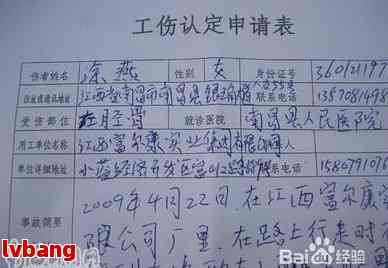 工伤认定申请表
伤者姓名 涂燕 性别 女 身份证号 360121197
住址或通讯地址 江西省南昌市南昌县 联系电话 1357081498
受伤部位 左胫骨 就诊医院 南昌县人民医院
用工单位名称 江西富尔康实业集团有限公司
单位详细地址 小蓝经济开发区富山 联系电话 158079101
事故简要 2009年4月22日,在江西富尔康实
限公司厂里,在路上行走时
lvbang
Bai 百度经验